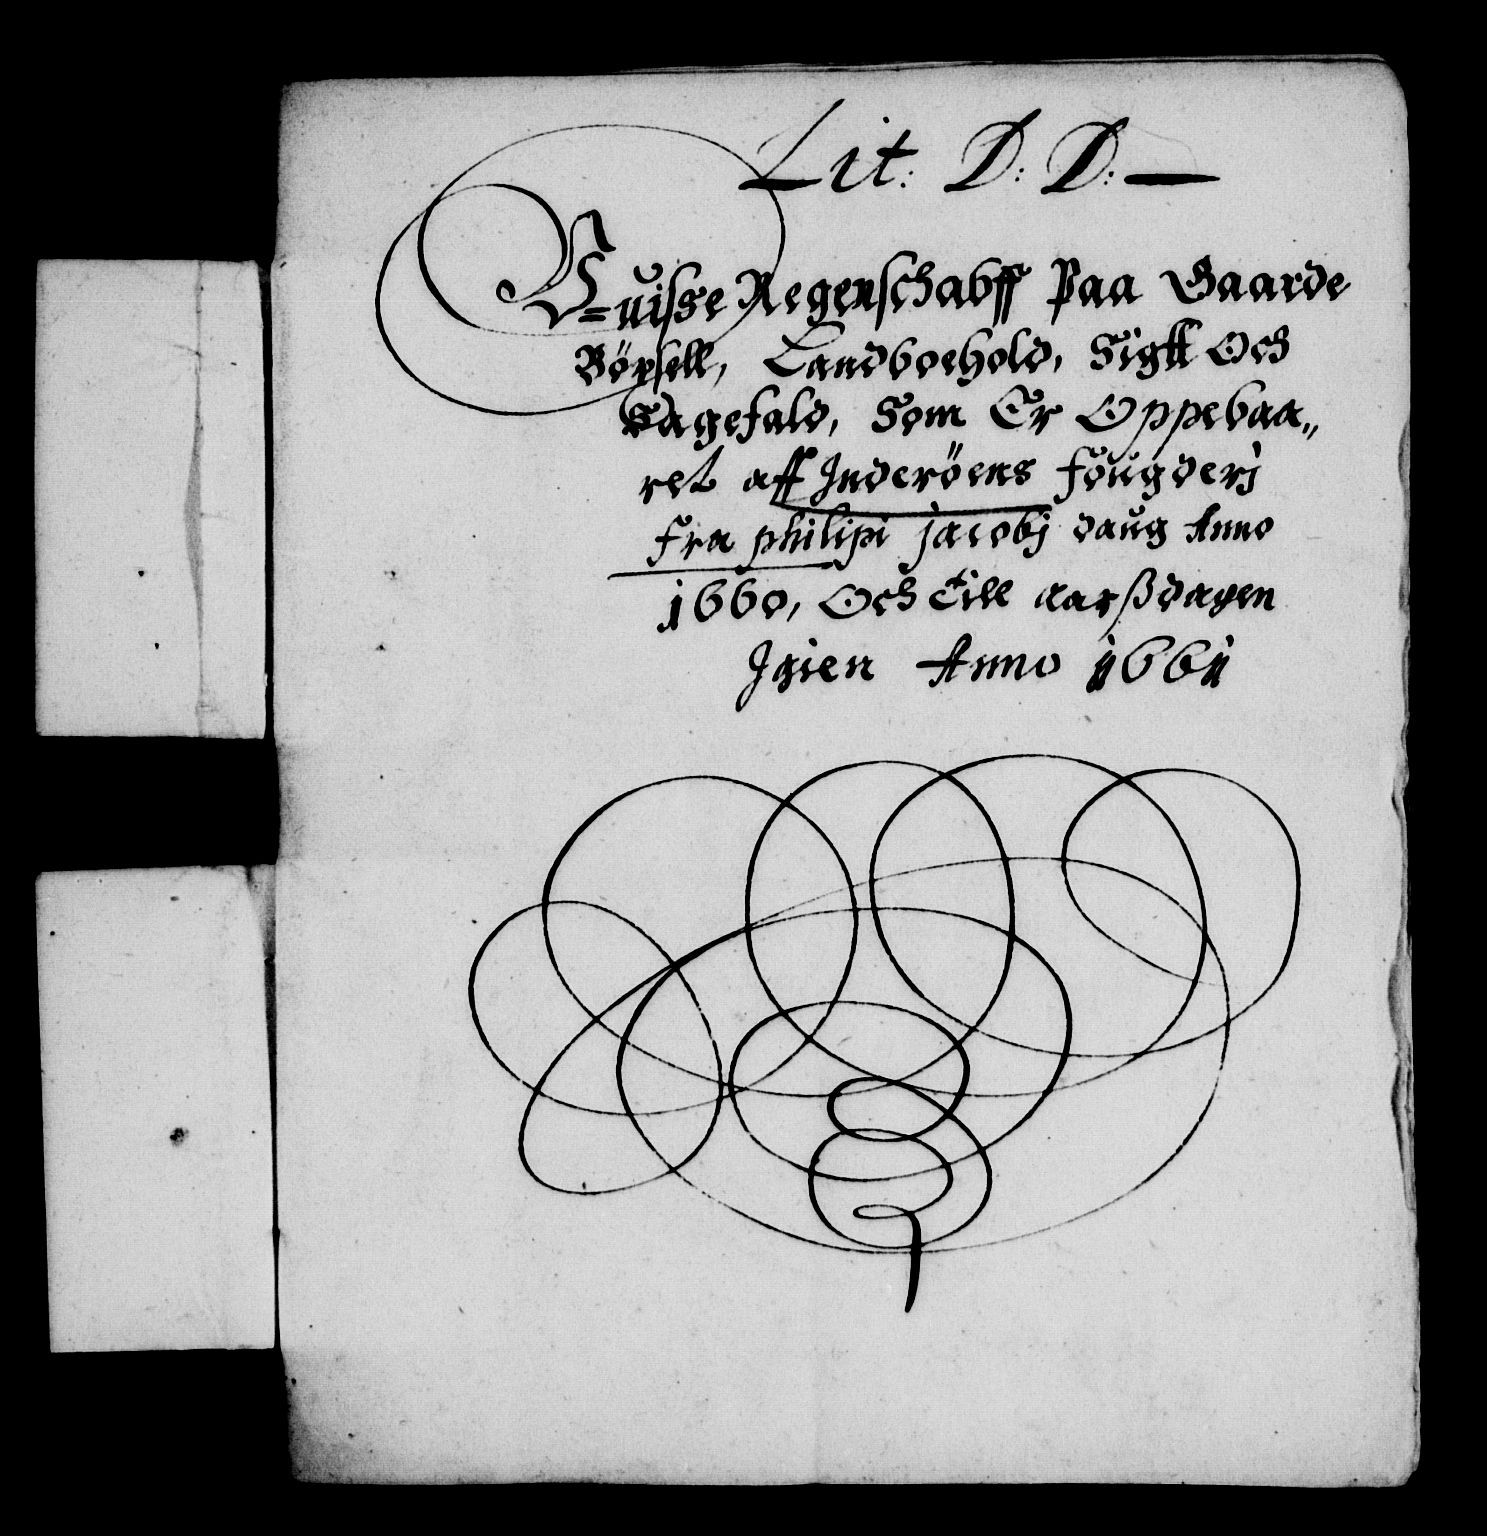 Lit: D: D:
Vuisse Regenschabff Paa Gaarde
Böxsell, Landboehold, Sigtt Och
Sagefald, Som Er Oppebaa„
ret aff Inderöens fougderj
fra philipi jacobj daug Anno
1660, Och till aarßdagen
Igien Anno 1661